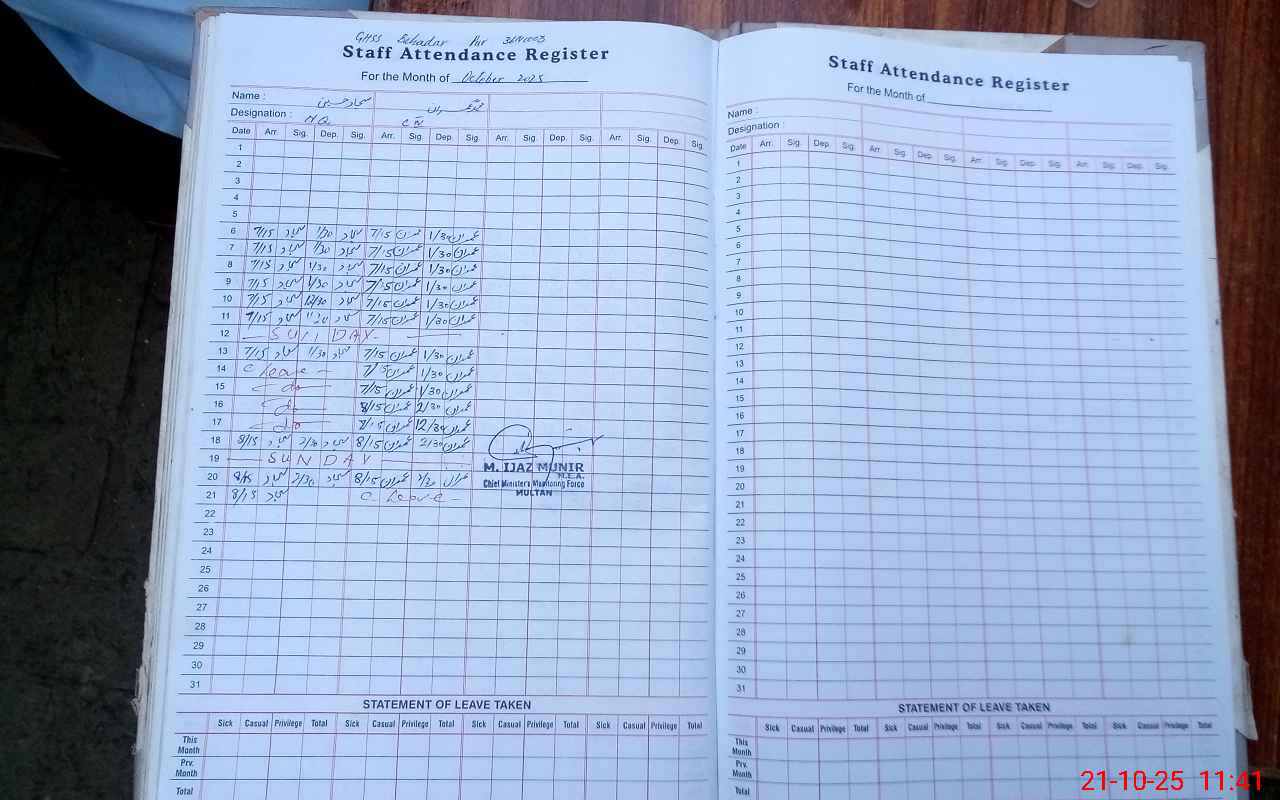 GHSS
Staff Attendance Register
For the Month of October 2025
Name : سجاد حسین
Designation :
Date Arr. Sig. Dep. Sig. Arr. Sig. Dep. Sig. Arr. Sig. Dep. Sig. Arr. Sig. Dep. Sig.
1
2
3
4
5
6 7/15 سجاد 1/30 سجاد 7/15 عمران 1/30 عمران
7 7/15 سجاد 1/30 سجاد 7/15 عمران 1/30 عمران
8 7/15 سجاد 1/30 سجاد 7/15 عمران 1/30 عمران
9 7/15 سجاد 1/30 سجاد 7/15 عمران 1/30 عمران
10 7/15 سجاد 12/30 سجاد 7/15 عمران 1/30 عمران
11 7/15 سجاد سجاد 7/15 عمران 1/30 عمران
12 — SUNDAY —
13 7/15 سجاد 1/30 سجاد 7/15 عمران 1/30 عمران
14 C Leave — 7/15 عمران 1/30 عمران
15 — do — 7/15 عمران 1/30 عمران
16 — do — 8/15 عمران 2/30 عمران
17 — do — 8/15 عمران 12/30 عمران
18 8/15 سجاد 2/30 سجاد 8/15 عمران 2/30 عمران
19 — SUNDAY —
20 8/15 سجاد 2/30 سجاد 8/15 عمران 2/30 عمران
21 8/15 سجاد C Leave —
M. IJAZ MUNIR
M.E.A.
Chief Minister's Monitoring Force
MULTAN
22
23
24
25
26
27
28
29
30
31
STATEMENT OF LEAVE TAKEN
Sick Casual Privilege Total Sick Casual Privilege Total Sick Casual Privilege Total Sick Casual Privilege Total
This Month
Prv. Month
Total
Staff Attendance Register
For the Month of
Name :
Designation :
Date Arr. Sig. Dep. Sig. Arr. Sig. Dep. Sig. Arr. Sig. Dep. Sig. Arr. Sig. Dep. Sig.
1
2
3
4
5
6
7
8
9
10
11
12
13
14
15
16
17
18
19
20
21
22
23
24
25
26
27
28
29
30
31
STATEMENT OF LEAVE TAKEN
Sick Casual Privilege Total Sick Casual Privilege Total Sick Casual Privilege Total Sick Casual Privilege Total
This Month
Prv. Month
Total
21-10-25 11:41